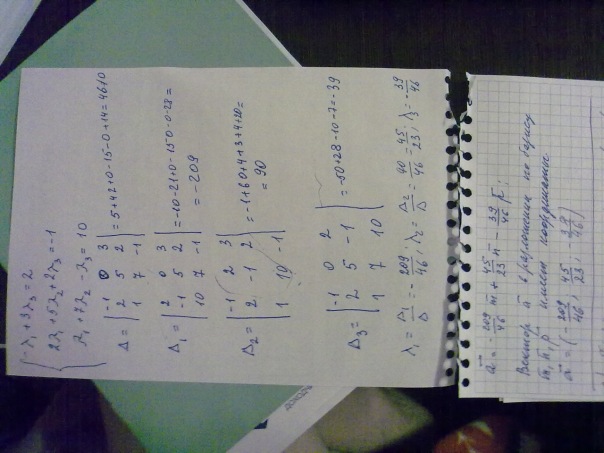 -λ₁ + 3λ₃ = 2
2λ₁ + 5λ₂ + 2λ₃ = -1
λ₁ + 7λ₂ - λ₃ = 10
Δ = | -1 0 3 |
| 2 5 2 | = 5 + 42 + 0 - 15 - 0 + 14 = 46 ≠ 0
| 1 7 -1 |
Δ₁ = | 2 0 3 |
| -1 5 2 | = -10 - 21 + 0 - 150 - 0 - 28 =
| 10 7 -1 | = -209
Δ₂ = | -1 2 3 |
| 2 -1 2 | = -1 + 60 + 4 + 3 + 4 + 20 =
| 1 10 -1 | = 90
Δ₃ = | -1 0 2 |
| 2 5 -1 | = -50 + 28 - 10 - 7 = -39
| 1 7 10 |
λ₁ = Δ₁/Δ = -209/46; λ₂ = Δ₂/Δ = 40/46 = 45/23; λ₃ = -39/46
a = -209/46 m + 45/23 n - 39/46 p;
Вектор a в разложении по базису
m, n, p имеет координаты
a = (-209/46; 45/23; -39/46)